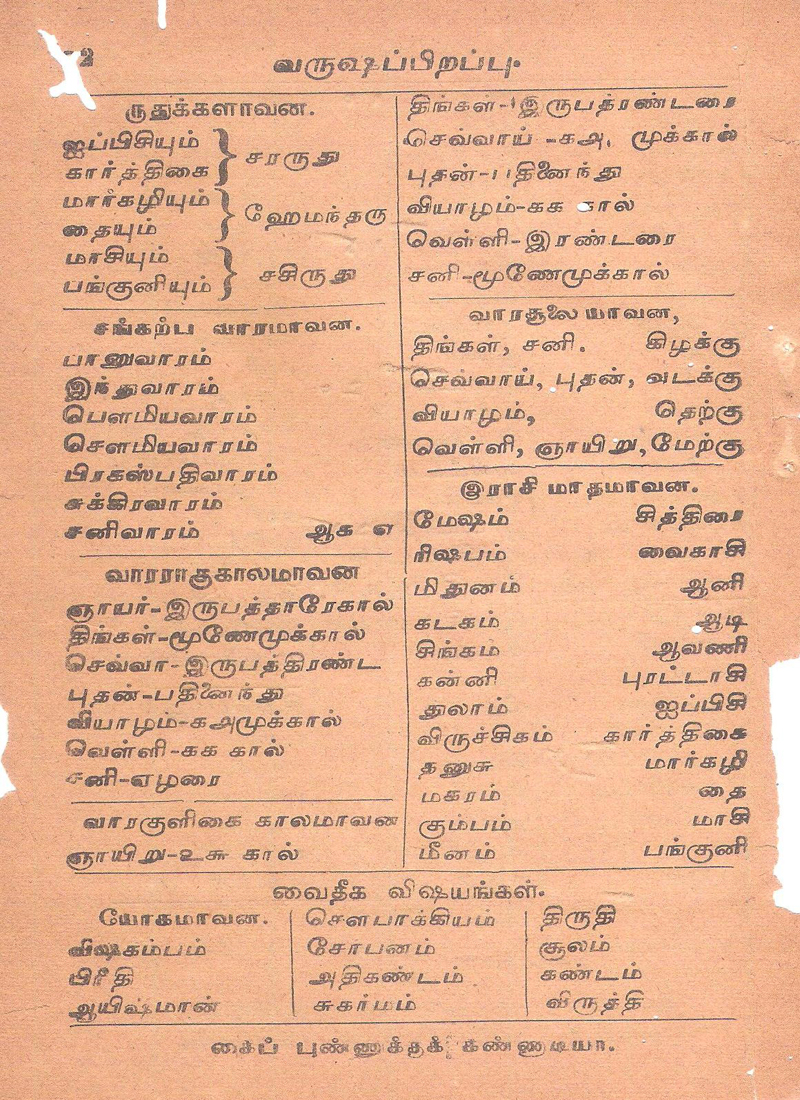 வருஷப்பிறப்பு.
ருதுக்களாவன.
ஐப்பிசியும்
கார்த்திகை } சரருது
மார்கழியும்
தையும் } ஹேமந்தரு
மாசியும்
பங்குனியும் } சசிருது
சங்கற்ப வாரமாவன.
பானுவாரம்
இந்துவாரம்
பௌமியவாரம்
சௌமியவாரம்
பிரகஸ்பதிவாரம்
சுக்கிரவாரம்
சனிவாரம் ஆக எ
வாரராகுகாலமாவன
ஞாயர்-இருபத்தாரேகால்
திங்கள்-மூணேமுக்கால்
செவ்வா-இருபத்திரண்ட
புதன்-பதினைந்து
வியாழம்-கஅமுக்கால்
வெள்ளி-கக கால்
சனி-எழரை
வாரகுளிகை காலமாவன
ஞாயிறு-உசு கால்
திங்கள்-இருபத்ரண்டரை
செவ்வாய் -கஅ. முக்கால்
புதன்-பதினைந்து
வியாழம்-கக கால்
வெள்ளி-இரண்டரை
சனி-மூணேமுக்கால்
வாரசூலை யாவன,
திங்கள், சனி. கிழக்கு
செவ்வாய், புதன், வடக்கு
வியாழம், தெற்கு
வெள்ளி, ஞாயிறு, மேற்கு
இராசி மாதமாவன.
மேஷம் சித்திரை
ரிஷபம் வைகாசி
மிதுனம் ஆனி
கடகம் ஆடி
சிங்கம ஆவணி
கன்னி புரட்டாசி
துலாம் ஐப்பிசி
விருச்சிகம் கார்த்திகை
தனுசு மார்கழி
மகரம் தை
கும்பம் மாசி
மீனம் பங்குனி
வைதீக விஷயங்கள்.
யோகமாவன.
விஷகம்பம்
பிரீதி
ஆயிஷ்மான்
சௌபாக்கியம்
சோபனம்
அதிகண்டம்
சுகர்மம்
திருதி
சூலம்
கண்டம்
விருத்தி
கைப் புண்ணுக்குக் கண்ணாடியா.